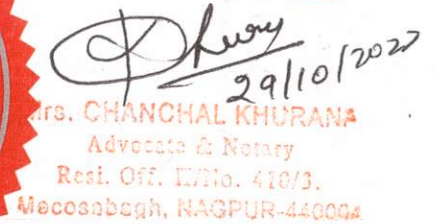 Khury
29/10/2022
Mrs. CHANCHAL KHURANA
Advocate & Notary
Resi. Off. E/No. 410/3.
Mecosabagh, NAGPUR-440004